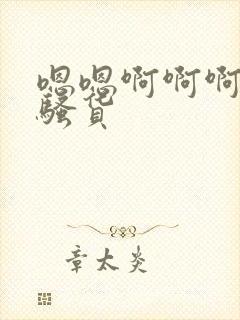 嗯嗯啊啊啊
骚货
章太炎